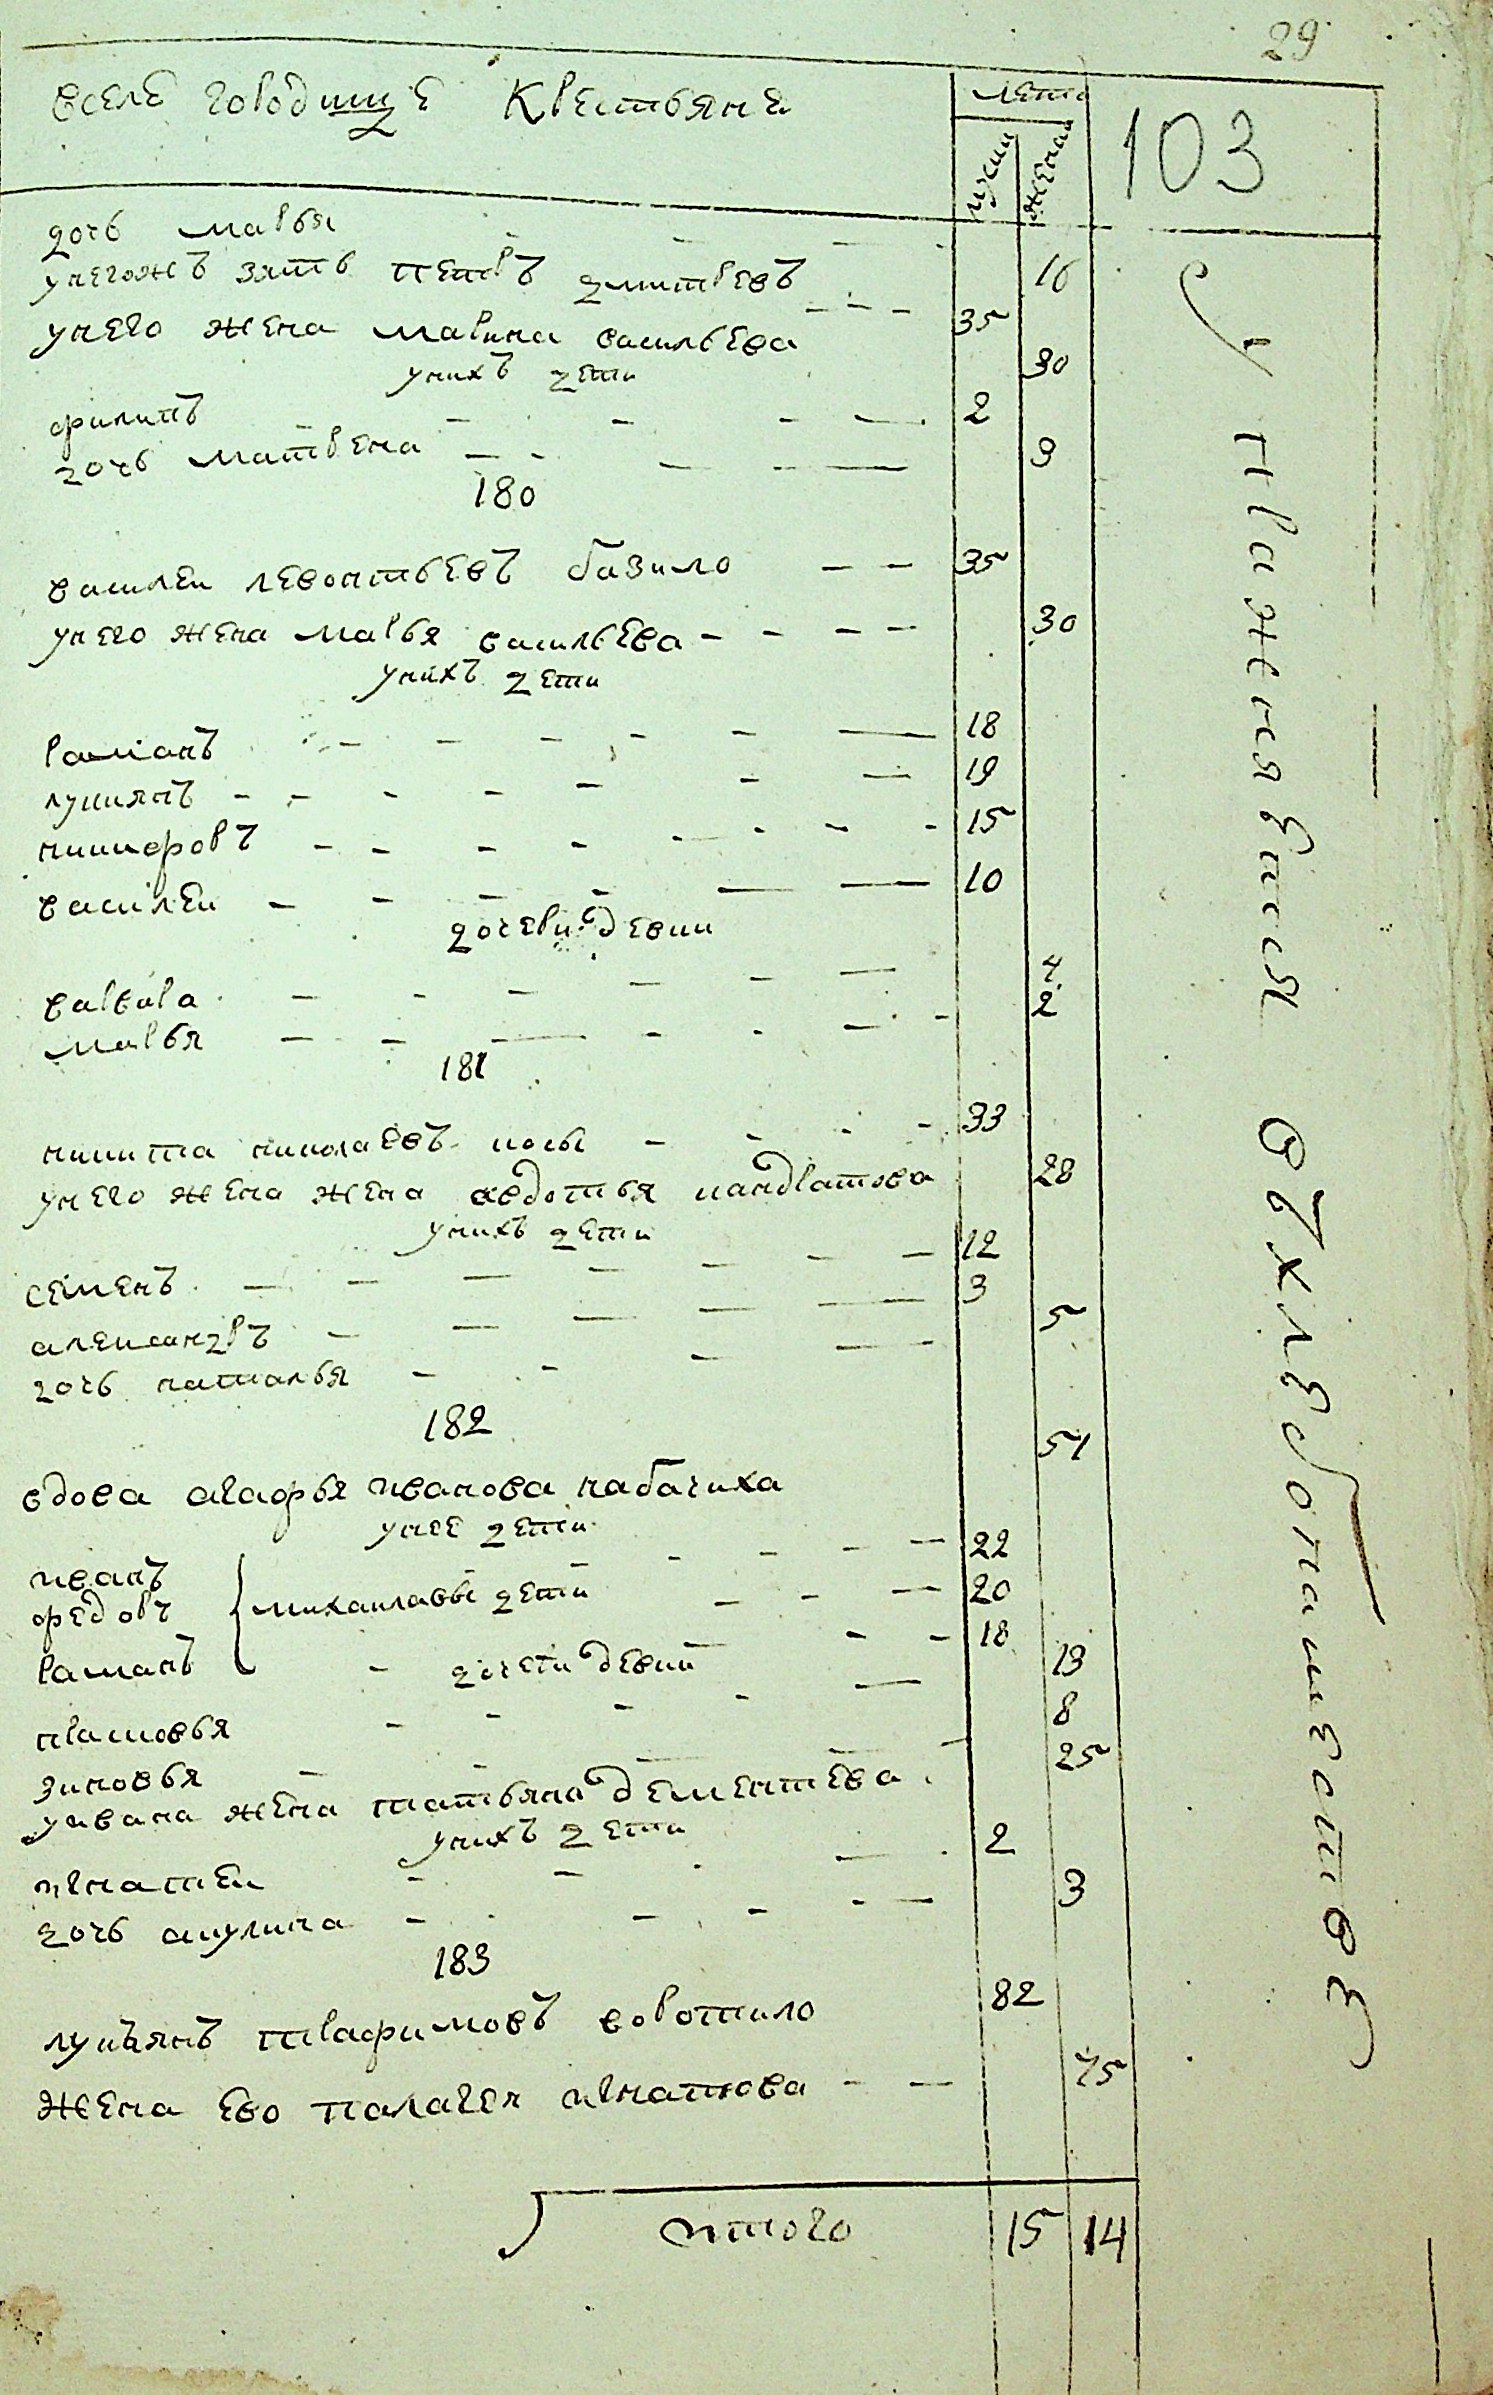 29
вселе городище крестьяне
лета
мужи
женск
103
дочь марья 16
унегожъ зять петръ дмитревъ 35
унего жена марина васильева 30
унихъ дети
филипъ 2
дочь матрена 9
180
василеи левонтьевъ базило 35
унего жена марья васильева 30
унихъ дети
раманъ 18
лукиянъ 19
никифоръ 15
василеи 10
дочери девки
варвара 4
марья 2
181
никита николаевъ 33
унего жена жена авдотья кандратова 28
унихъ дети
семенъ 12
александръ 3
дочь наталья 5
182
вдова агафья иванова кабачиха 51
унее дети
иванъ 22
федоръ михаилавы дети 20
раманъ 18
дочери девки
прасковья 13
зиновья 8
уивана жена татьяна дементева 25
унихъ дети
игнатеи 2
дочь акулина 3
183
лукъянъ трафимовъ воротило 82
жена ево палагея игнатова 75
итого 15 14